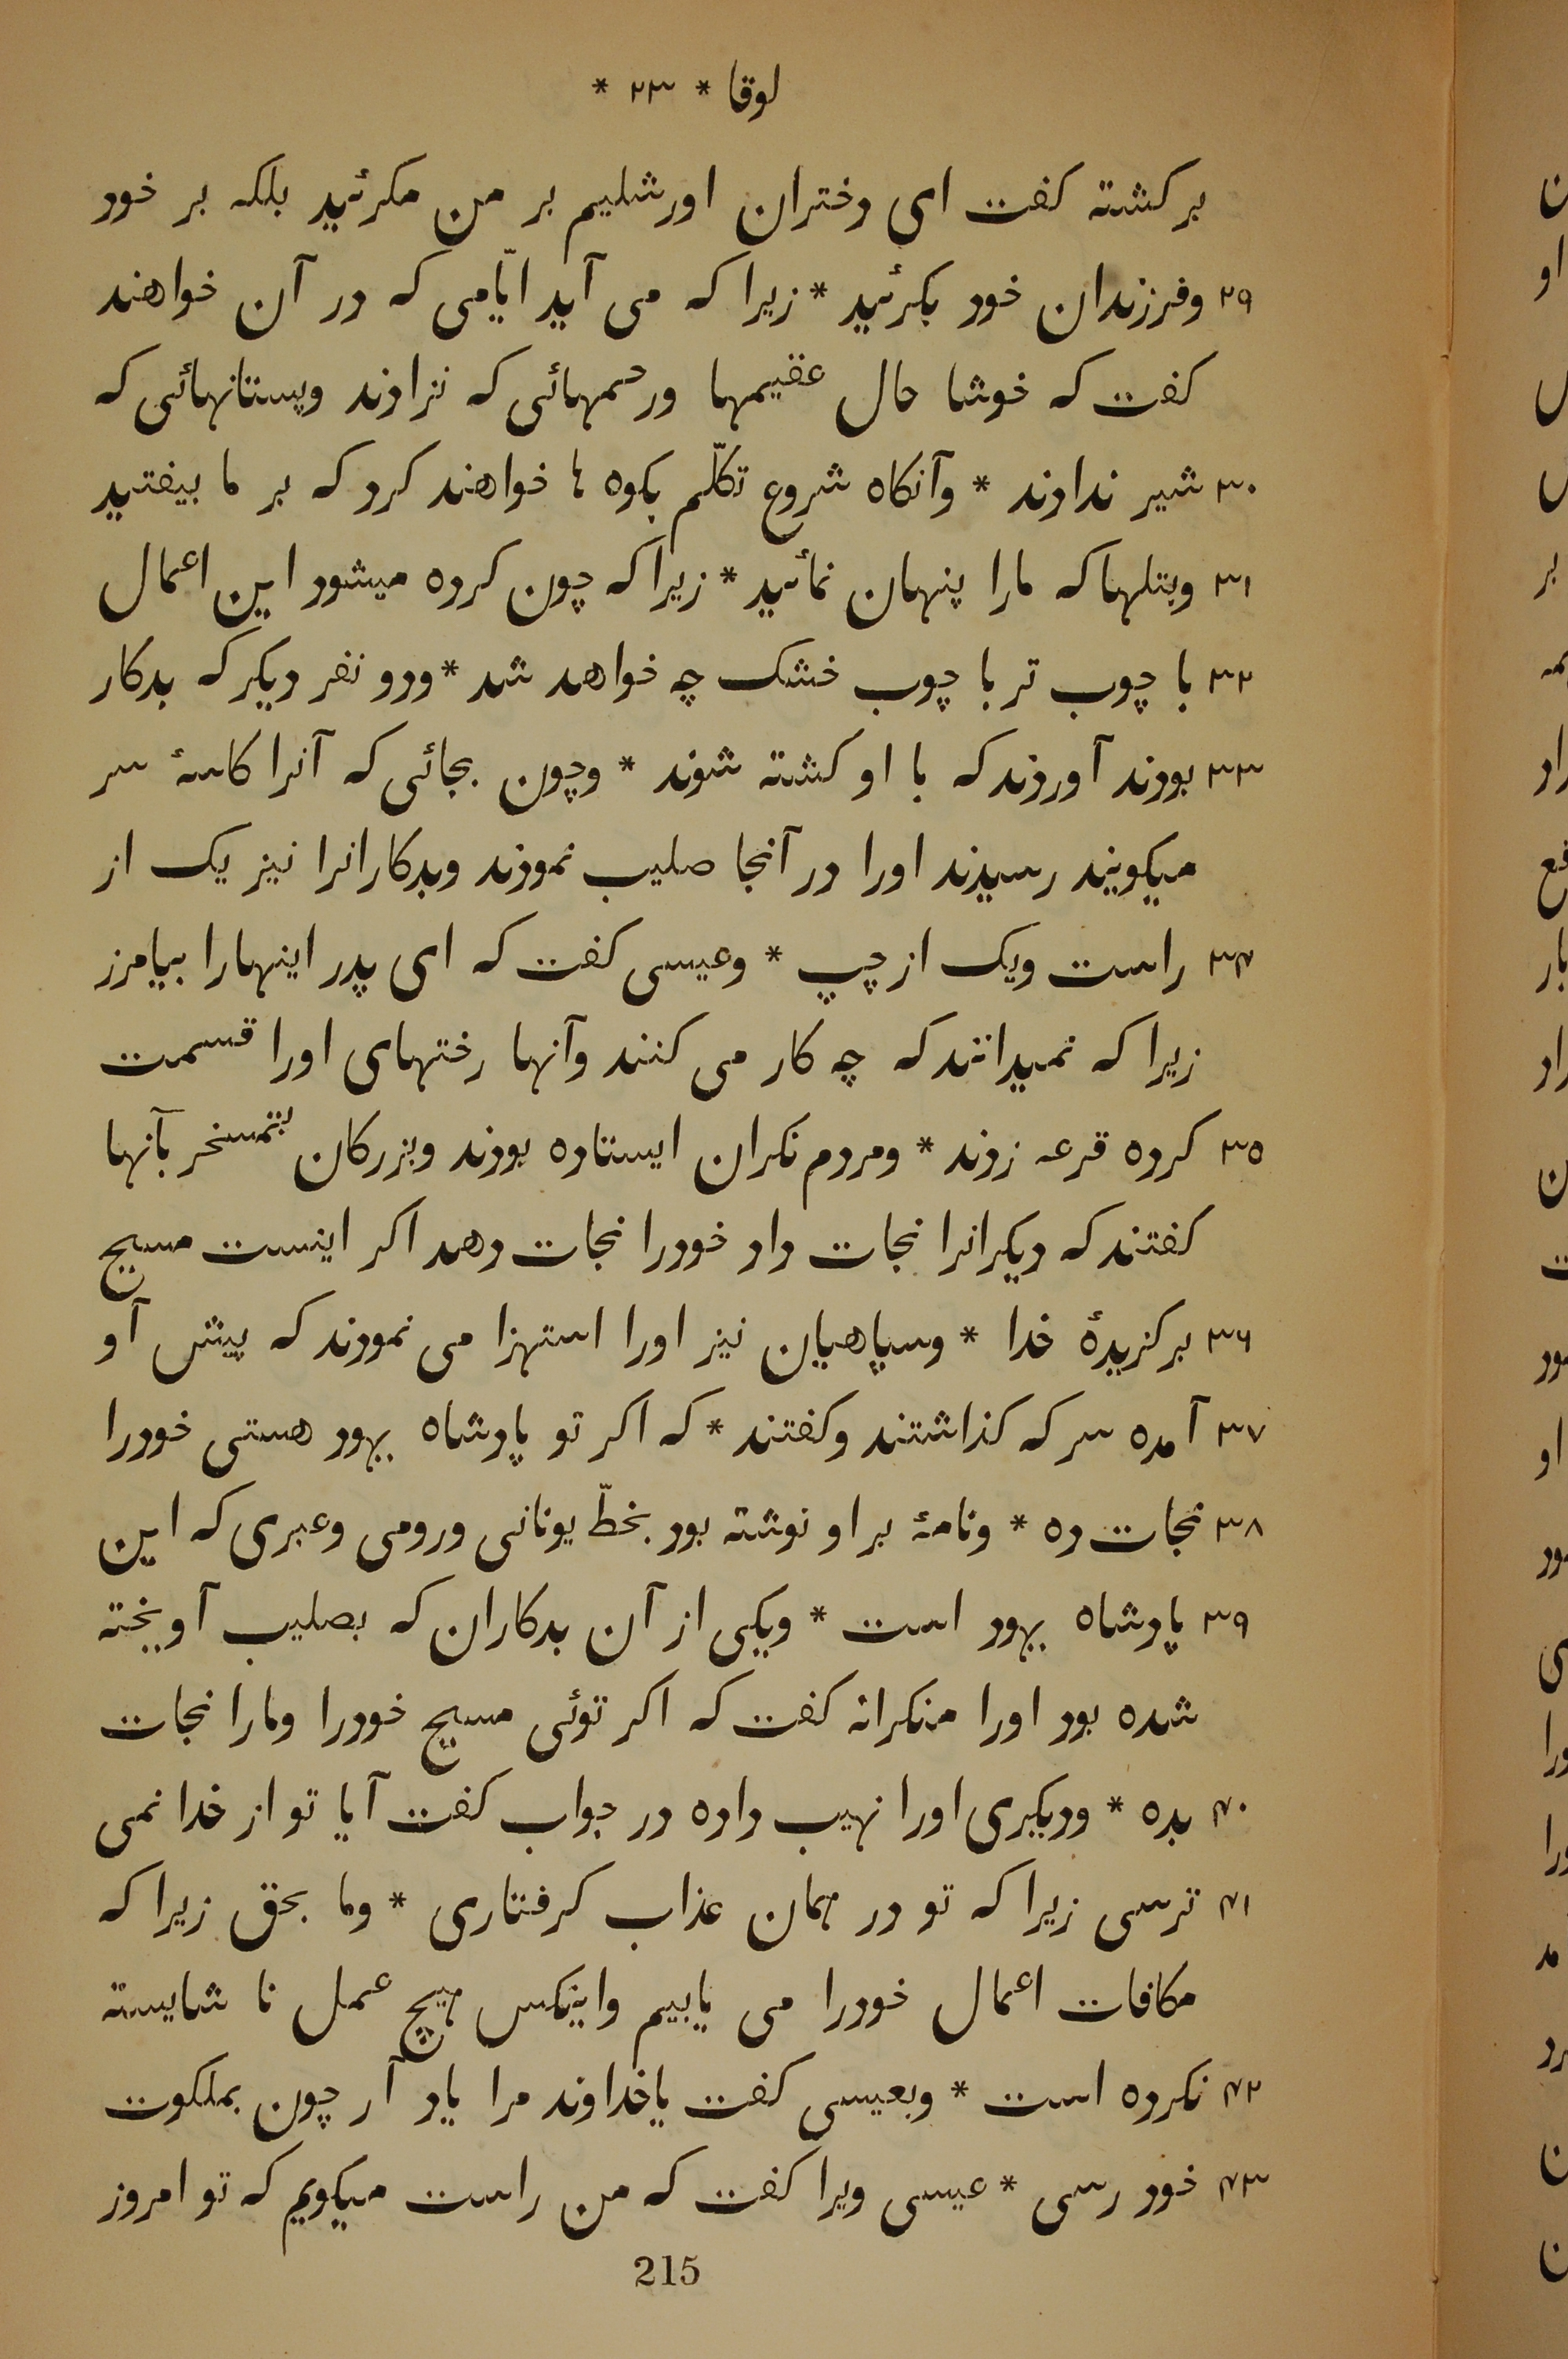 لوقا * ۲۳ *
بر کشته کفت ای دختران اورشلیم بر من مکرئید بلکه بر خود
۲۹ وفرزندان خود بکرئید * زیرا که می آید ایّامی که در آن خواهند
کفت که خوشا حال عقیمها ورحمهائی که نزادند وپستانهائی که
۳۰ شیر ندادند * وآنکاه شروع تکلّم بکوه ها خواهند کرد که بر ما بیفتید
۳۱ وبتلها که مارا پنهان نمائید * زیرا که چون کرده میشود این اعمال
۳۲ با چوب تر با چوب خشک چه خواهد شد * ودو نفر دیکر که بدکار
۳۳ بودند آوردند که با او کشته شوند * وچون بجائی که آنرا کاسهٔ سر
میکویند رسیدند اورا در آنجا صلیب نمودند وبدکارانرا نیز یک از
۳۴ راست ویک از چپ * وعیسی کفت که ای پدر اینهارا بیامرز
زیرا که نمیدانند که چه کار می کنند وآنها رختهای اورا قسمت
۳۵ کرده قرعه زدند * ومردم نکران ایستاده بودند وبزرکان بتمسخر بآنها
کفتند که دیکرانرا نجات داد خودرا نجات دهد اکر اینست مسیح
۳۶ برکزیدهٔ خدا * وسپاهیان نیز اورا استهزا می نمودند که پیش او
۳۷ آمده سرکه کذاشتند وکفتند * که اکر تو پادشاه یهود هستی خودرا
۳۸ نجات ده * ونامهٔ بر او نوشته بود بخطّ یونانی ورومی وعبری که این
۳۹ پادشاه یهود است * ویکی از آن بدکاران که بصلیب آویخته
شده بود اورا منکرانه کفت که اکر توئی مسیح خودرا ومارا نجات
۴۰ بده * ودیکری اورا نهیب داده در جواب کفت آیا تو از خدا نمی
۴۱ ترسی زیرا که تو در همان عذاب کرفتاری * وما بحق زیرا که
مکافات اعمال خودرا می یابیم واینکس هیچ عمل نا شایسته
۴۲ نکرده است * وبعیسی کفت یاخداوند مرا یاد آر چون بملکوت
۴۳ خود رسی * عیسی ویرا کفت که من راست میکویم که تو امروز
215